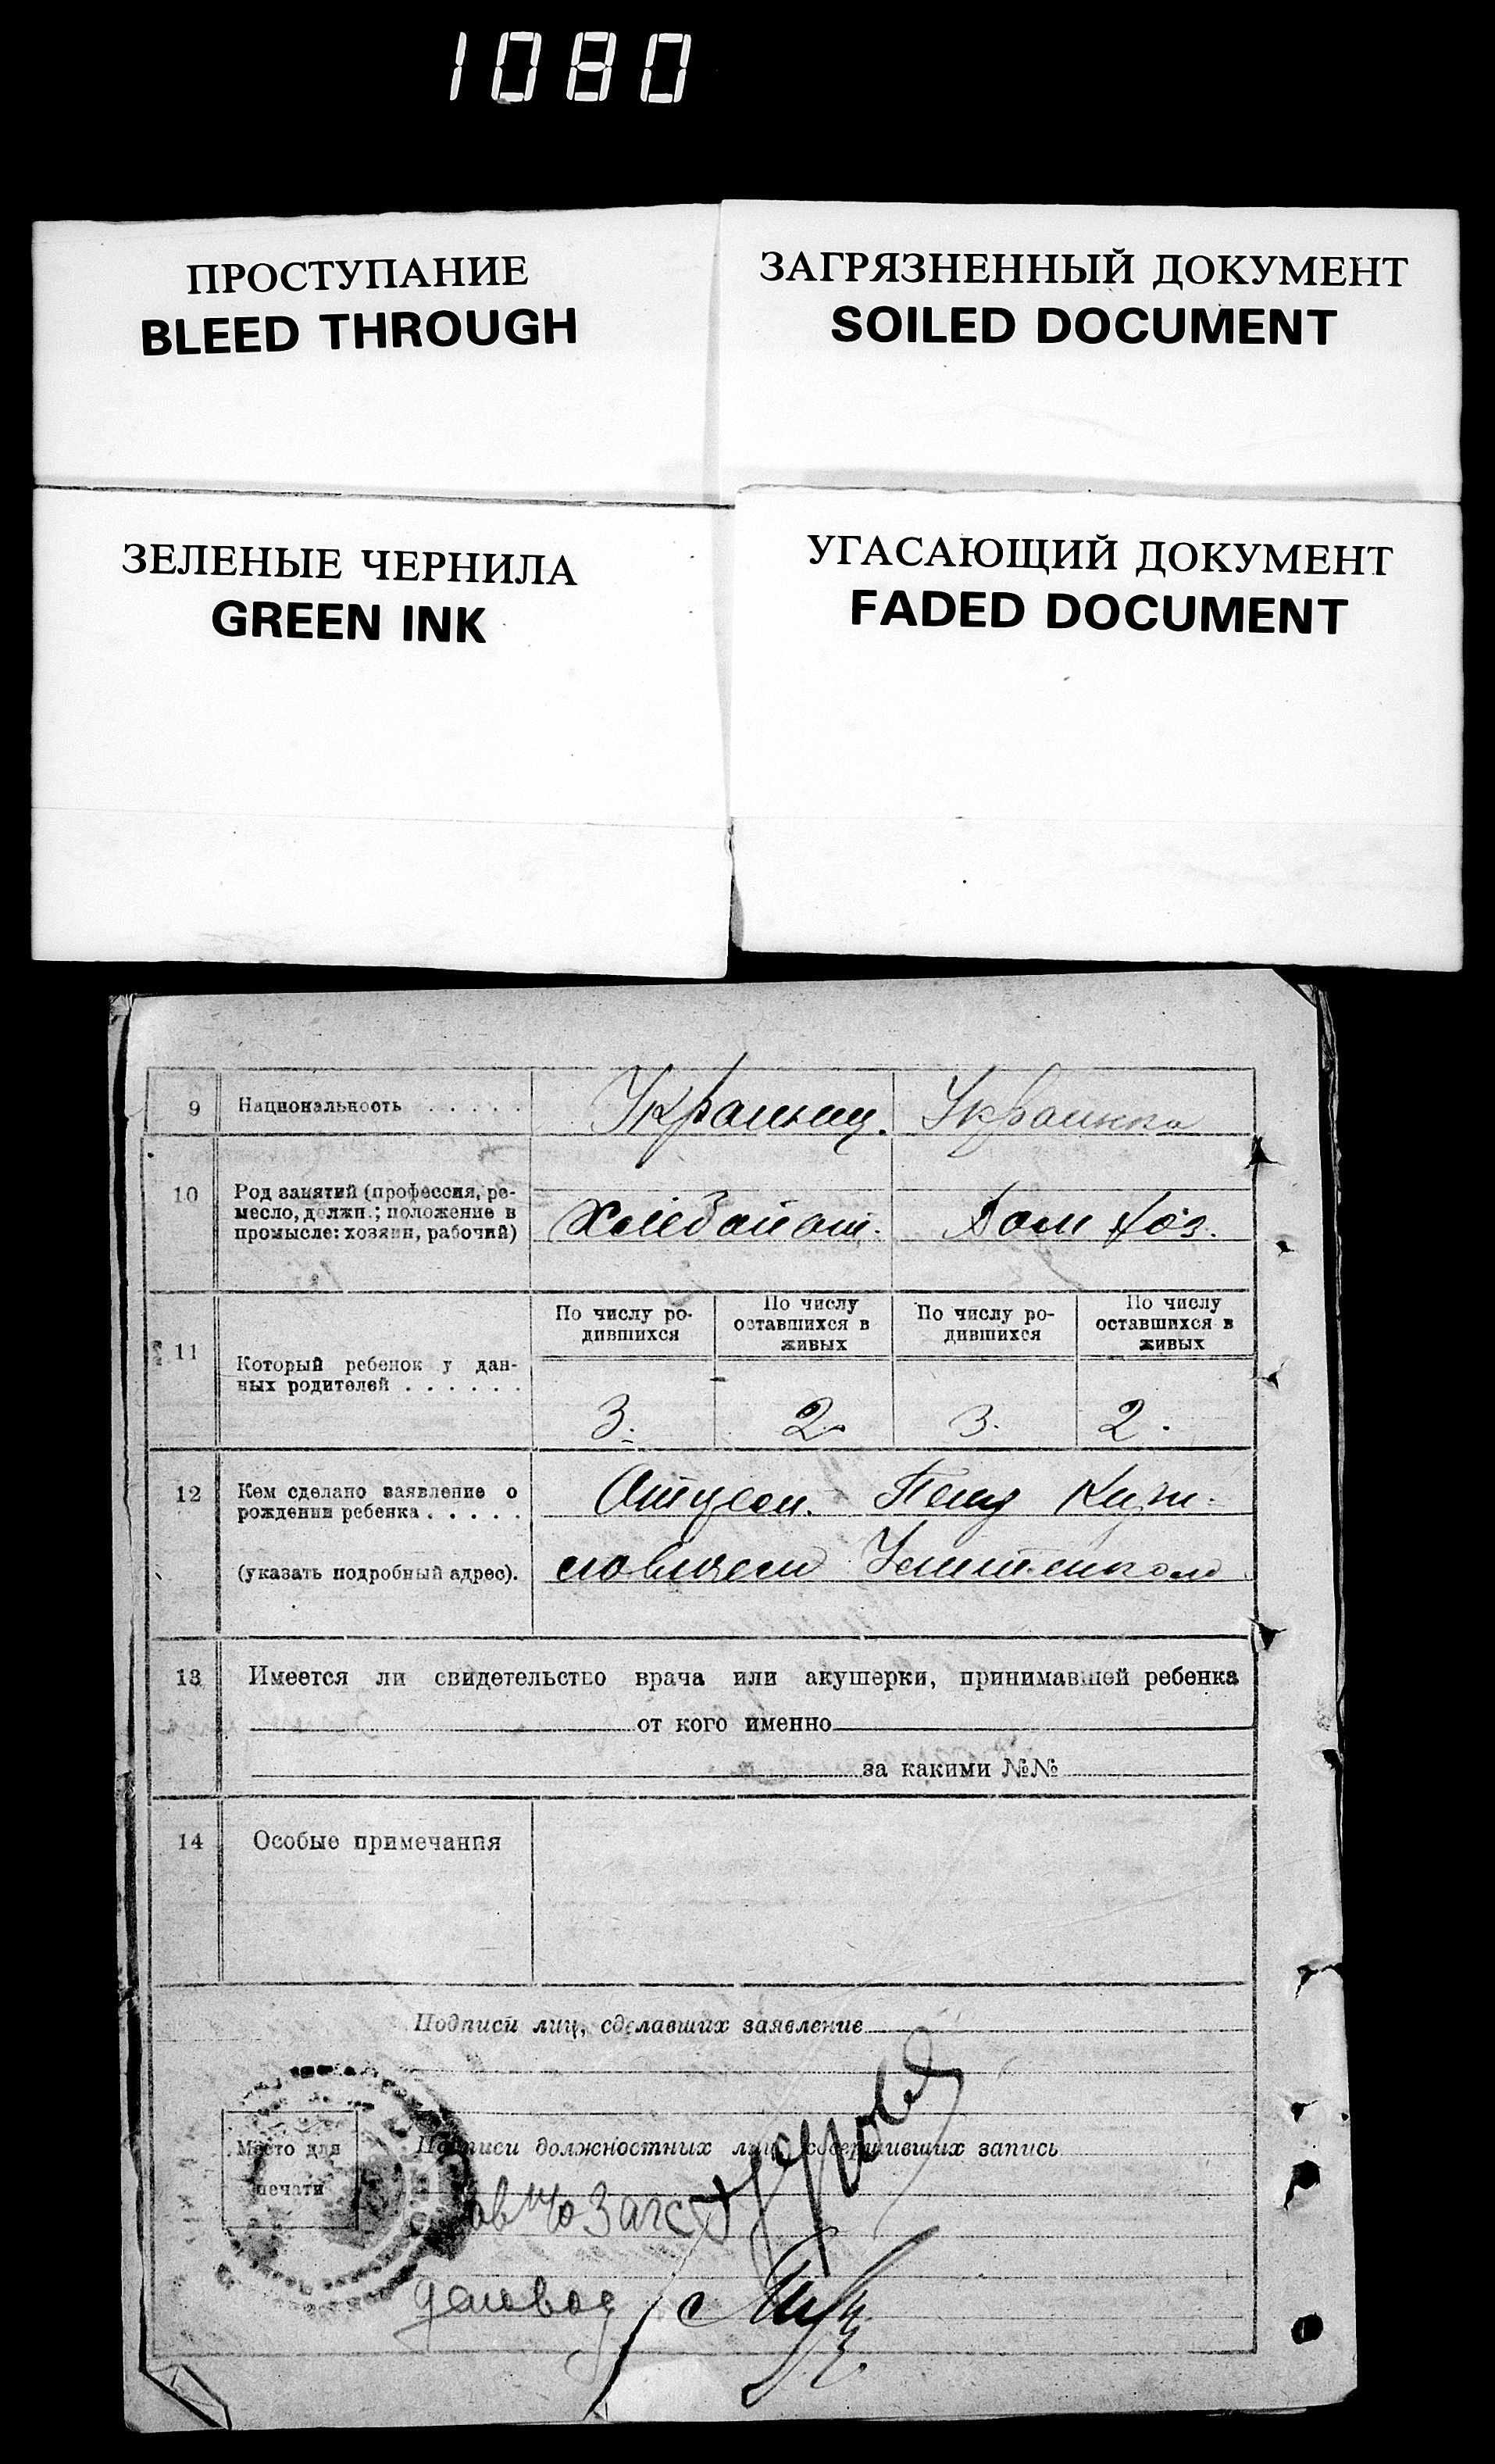 1080
ПРОСТУПАНИЕ
BLEED THROUGH
ЗАГРЯЗНЕННЫЙ ДОКУМЕНТ
SOILED DOCUMENT
ЗЕЛЕНЫЕ ЧЕРНИЛА
GREEN INK
УГАСАЮЩИЙ ДОКУМЕНТ
FADED DOCUMENT
9 Национальность . . . . . Украинец. Украинка
10 Род занятий (профессия, ре-
месло, должн.; положение в
промысле: хозяин, рабочий)
Хлебопаш. Дом хоз.
По числу ро-
дившихся
По числу
оставшихся в
живых
По числу ро-
дившихся
По числу
оставшихся в
живых
11 Который ребенок у дан-
ных родителей . . . . . .
3. 2. 3. 2.
12 Кем сделано заявление о
рождении ребенка . . . . .
(указать подробный адрес).
Отцем.
13 Имеется ли свидетельство врача или акушерки, принимавшей ребенка
от кого именно
за какими №№
14 Особые примечания
Подписи лиц, сделавших заявление
Место для
печати
Подписи должностных лиц, совершивших запись
Загс
деловод